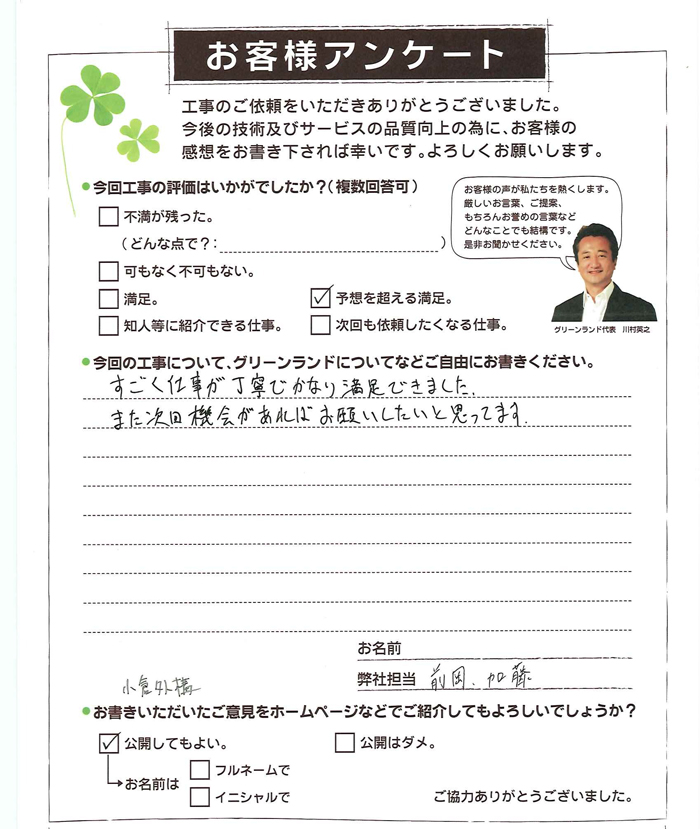 お客様アンケート
工事のご依頼をいただきありがとうございました。
今後の技術及びサービスの品質向上の為に、お客様の
感想をお書き下されば幸いです。よろしくお願いします。
●今回工事の評価はいかがでしたか？（複数回答可）
不満が残った。
（どんな点で？：　　　　　）
可もなく不可もない。
満足。
予想を超える満足。
知人等に紹介できる仕事。
次回も依頼したくなる仕事。
お客様の声が私たちを熱くします。
厳しいお言葉、ご提案、
もちろんお誉めの言葉など
どんなことでも結構です。
是非お聞かせください。
グリーンランド代表　川村英之
●今回の工事について、グリーンランドについてなどご自由にお書きください。
すごく仕事が丁寧でかなり満足できました。
また次回機会があればお願いしたいと思ってます。
お名前
弊社担当　前岡、加藤
小倉 様
●お書きいただいたご意見をホームページなどでご紹介してもよろしいでしょうか？
公開してもよい。
公開はダメ。
お名前は
フルネームで
イニシャルで
ご協力ありがとうございました。